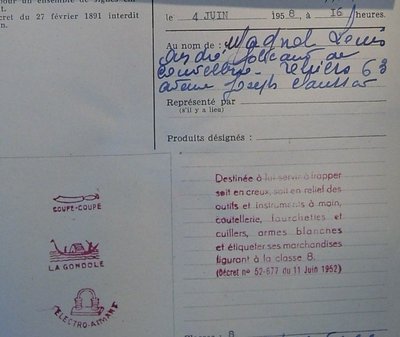 cret du 27 février 1891 interdit
le 4 JUIN 1958, à 16 heures.
Au nom de : Magnol Louis
André
63
avenue Joseph
Représenté par
(s'il y a lieu)
Produits désignés :
COUPE-COUPE
LA GONDOLE
ELECTRO-AIMANT
Destinée à lui servir à frapper
soit en creux, soit en relief des
outils et instruments à main,
coutellerie, fourchettes et
cuillers, armes blanches
et étiqueter ses marchandises
figurant à la classe 8.
(Décret n° 52-677 du 11 Juin 1952)
8